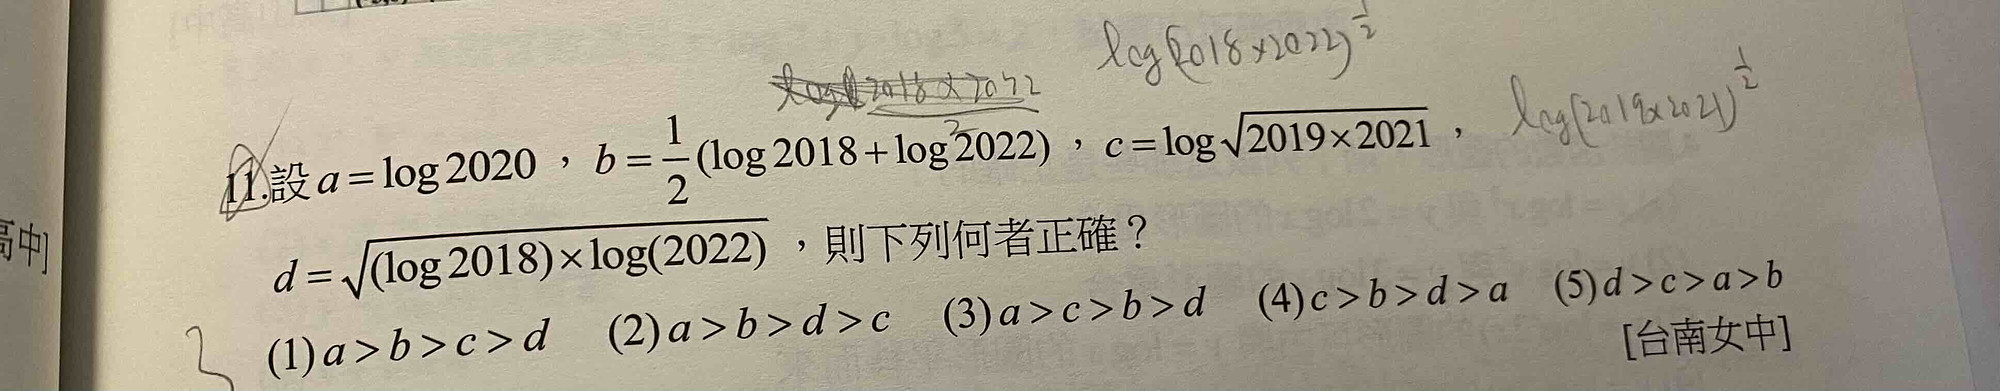 log(2018×2022)^{\frac{1}{2}}
log(2018×2022
log(2019×2021)^{\frac{1}{2}}
11.設a=log2020,b=\frac{1}{2}(log2018+log2022),c=log\sqrt{2019×2021},
d=\sqrt{(log2018)×log(2022)},則下列何者正確?
(1)a>b>c>d (2)a>b>d>c (3)a>c>b>d (4)c>b>d>a (5)d>c>a>b
[台南女中]
高中]